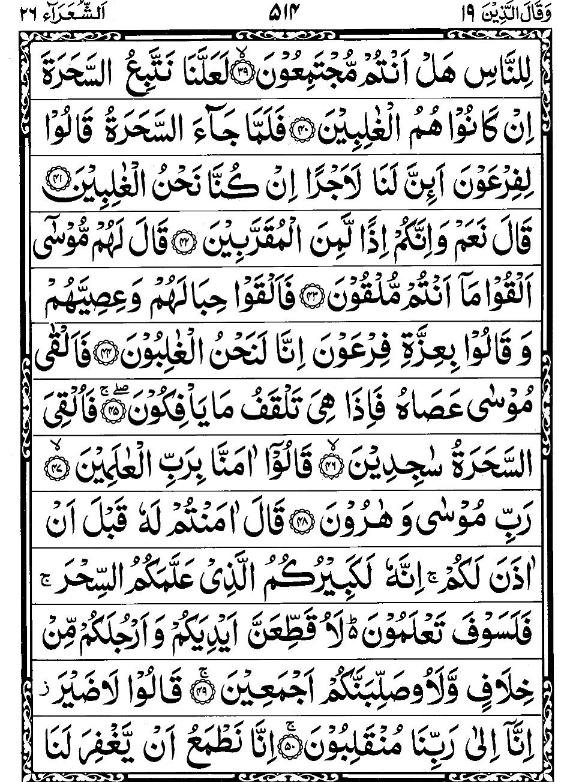 وَقَالَ الَّذِيْنَ ١٩ ٥١٤ اَلشُّعَرَآء ٢٦
لِلنَّاسِ هَلْ اَنْتُمْ مُّجْتَمِعُوْنَ ۙ﴿٣٩﴾ لَعَلَّنَا نَتَّبِعُ السَّحَرَةَ
اِنْ كَانُوْا هُمُ الْغٰلِبِيْنَ ﴿٤٠﴾ فَلَمَّا جَآءَ السَّحَرَةُ قَالُوْا
لِفِرْعَوْنَ اَئِنَّ لَنَا لَاَجْرًا اِنْ كُنَّا نَحْنُ الْغٰلِبِيْنَ ﴿٤١﴾
قَالَ نَعَمْ وَاِنَّكُمْ اِذًا لَّمِنَ الْمُقَرَّبِيْنَ ﴿٤٢﴾ قَالَ لَهُمْ مُّوْسٰٓى
اَلْقُوْا مَآ اَنْتُمْ مُّلْقُوْنَ ﴿٤٣﴾ فَاَلْقَوْا حِبَالَهُمْ وَعِصِيَّهُمْ
وَقَالُوْا بِعِزَّةِ فِرْعَوْنَ اِنَّا لَنَحْنُ الْغٰلِبُوْنَ ﴿٤٤﴾ فَاَلْقٰى
مُوْسٰى عَصَاهُ فَاِذَا هِىَ تَلْقَفُ مَا يَاْفِكُوْنَ ۖۚ﴿٤٥﴾ فَاُلْقِىَ
السَّحَرَةُ سٰجِدِيْنَ ۙ﴿٤٦﴾ قَالُوْٓا اٰمَنَّا بِرَبِّ الْعٰلَمِيْنَ ۙ﴿٤٧﴾
رَبِّ مُوْسٰى وَهٰرُوْنَ ﴿٤٨﴾ قَالَ اٰمَنْتُمْ لَهٗ قَبْلَ اَنْ
اٰذَنَ لَكُمْ ۚ اِنَّهٗ لَكَبِيْرُكُمُ الَّذِىْ عَلَّمَكُمُ السِّحْرَ ۚ
فَلَسَوْفَ تَعْلَمُوْنَ ؕ لَاُقَطِّعَنَّ اَيْدِيَكُمْ وَاَرْجُلَكُمْ مِّنْ
خِلَافٍ وَّلَاُوصَلِّبَنَّكُمْ اَجْمَعِيْنَ ۚ﴿٤٩﴾ قَالُوْا لَا ضَيْرَ ز
اِنَّآ اِلٰى رَبِّنَا مُنْقَلِبُوْنَ ۚ﴿٥٠﴾ اِنَّا نَطْمَعُ اَنْ يَّغْفِرَ لَنَا